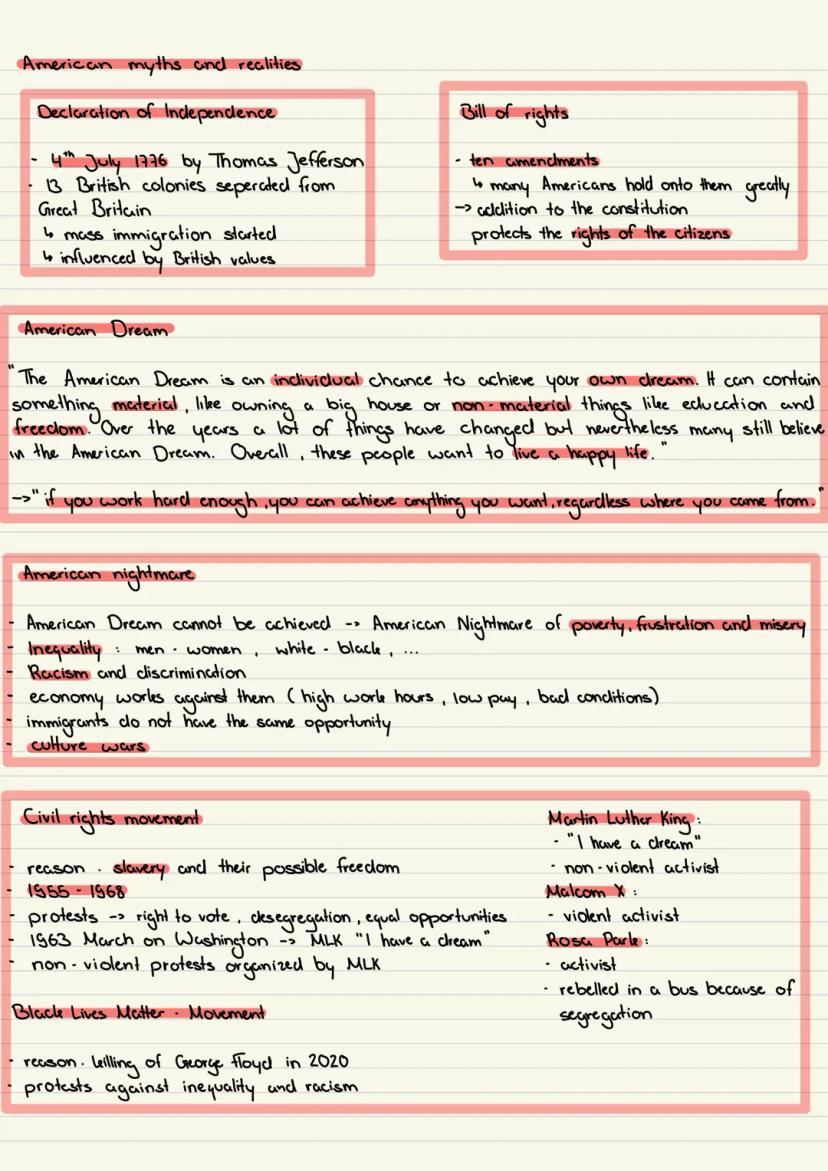 American myths and realities
Declaration of Independence
- 4th July 1776 by Thomas Jefferson
- 13 British colonies seperated from
Great Britain
↳ mass immigration started
↳ influenced by British values
Bill of rights
- ten amendments
↳ many Americans hold onto them greatly
-> addition to the constitution
protects the rights of the citizens
American Dream
"The American Dream is an individual chance to achieve your own dream. It can contain
something material, like owning a big house or non-material things like education and
freedom. Over the years a lot of things have changed but nevertheless many still believe
in the American Dream. Overall, these people want to live a happy life."
->"if you work hard enough, you can achieve anything you want, regardless where you came from."
American nightmare
- American Dream cannot be achieved -> American Nightmare of poverty, frustration and misery
- Inequality : men - women , white - black , ...
- Racism and discrimination
- economy works against them (high work hours , low pay , bad conditions)
- immigrants do not have the same opportunity
- culture wars
Civil rights movement
- reason : slavery and their possible freedom
- 1955 - 1968
- protests -> right to vote , desegregation , equal opportunities
- 1963 March on Washington -> MLK "I have a dream"
- non-violent protests organized by MLK
Black Lives Matter - Movement
- reason : killing of George Floyd in 2020
- protests against inequality and racism
Martin Luther King :
- "I have a dream"
- non-violent activist
Malcom X :
- violent activist
Rosa Park :
- activist
- rebelled in a bus because of
segregation